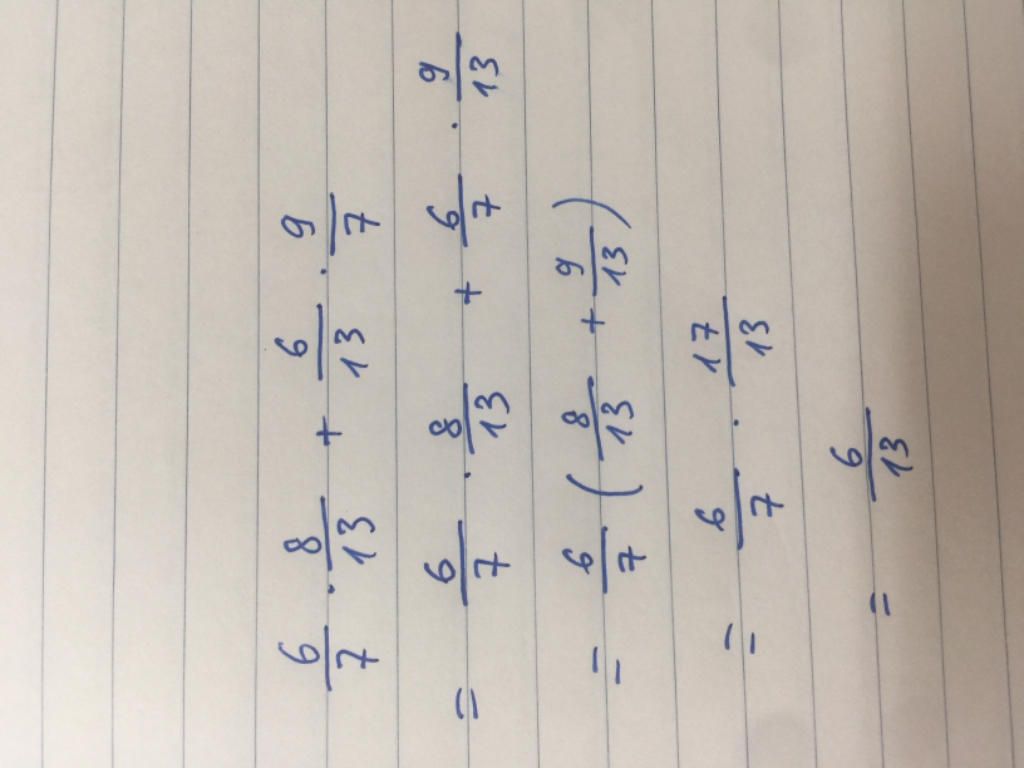 6/7 . 8/13 + 6/13 . 9/7
= 6/7 . 8/13 + 6/7 . 9/13
= 6/7 ( 8/13 + 9/13 )
= 6/7 . 17/13
= 6/13